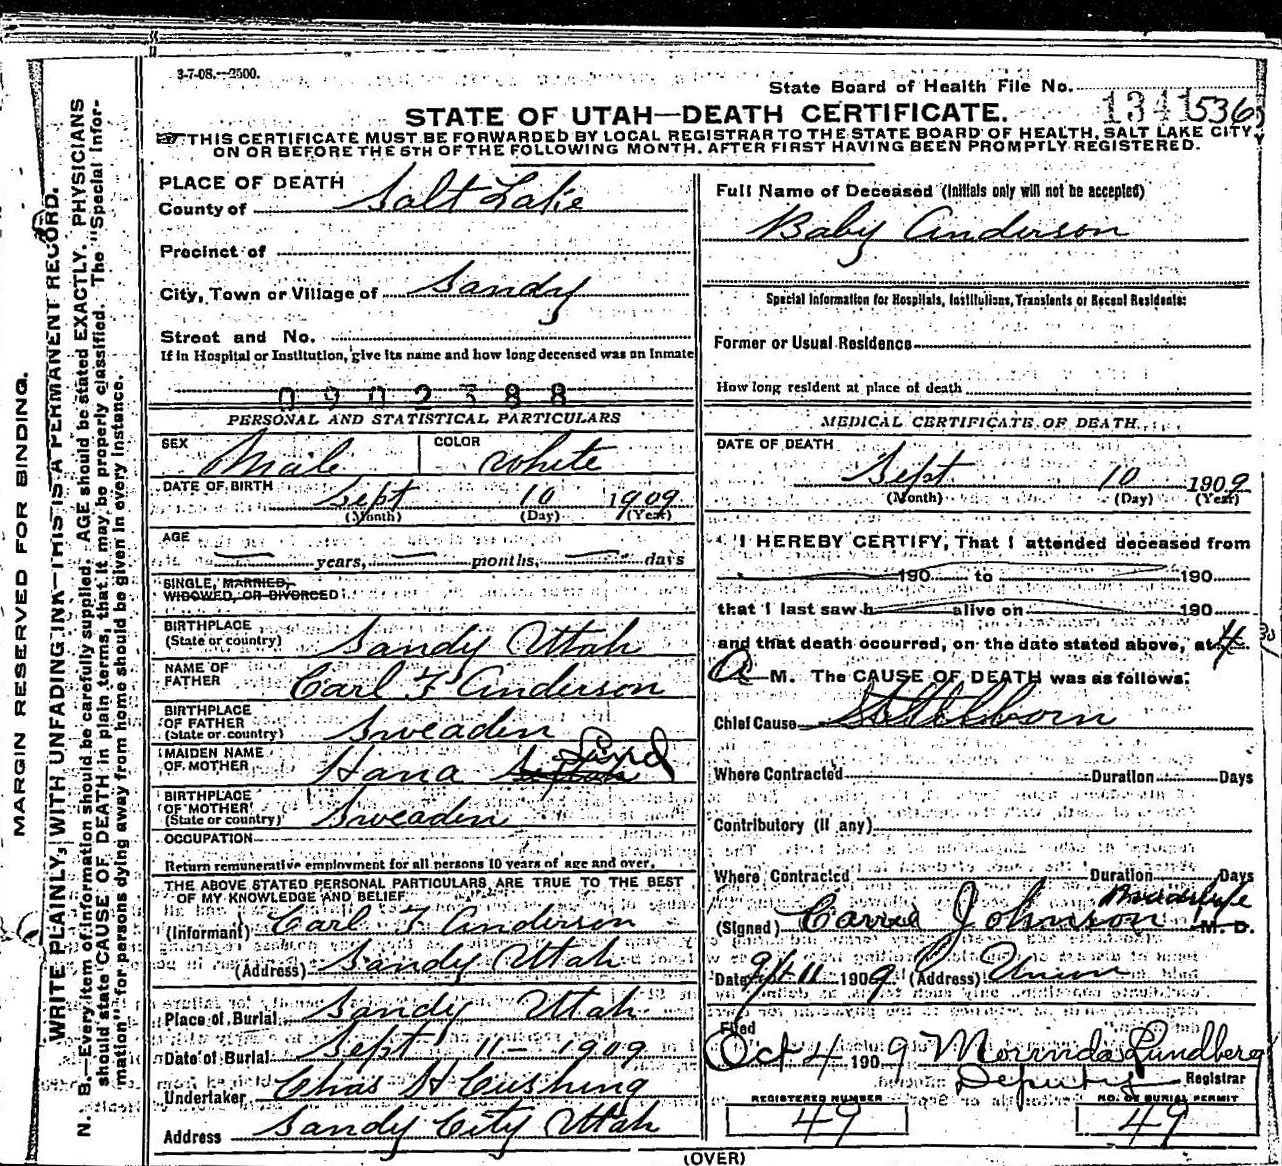 3-7-08.—2500.
State Board of Health File No. 1341 536
STATE OF UTAH—DEATH CERTIFICATE.
THIS CERTIFICATE MUST BE FORWARDED BY LOCAL REGISTRAR TO THE STATE BOARD OF HEALTH, SALT LAKE CITY,
ON OR BEFORE THE 5TH OF THE FOLLOWING MONTH. AFTER FIRST HAVING BEEN PROMPTLY REGISTERED.
MARGIN RESERVED FOR BINDING.
WRITE PLAINLY, WITH UNFADING INK—THIS IS A PERMANENT RECORD.
N. B.—Every item of information should be carefully supplied. AGE should be stated EXACTLY. PHYSICIANS
should state CAUSE OF DEATH in plain terms, that it may be properly classified. The "Special Infor-
mation" for persons dying away from home should be given in every instance.
PLACE OF DEATH
County of Salt Lake
Precinct of
City, Town or Village of Sandy
Street and No.
If in Hospital or Institution, give its name and how long deceased was an Inmate
0902388
PERSONAL AND STATISTICAL PARTICULARS
SEX Male COLOR White
DATE OF BIRTH Sept 10 1909
(Month) (Day) (Year)
AGE
years, months, days
SINGLE, MARRIED,
WIDOWED, OR DIVORCED
BIRTHPLACE
(State or country) Sandy Utah
NAME OF
FATHER Carl F Anderson
BIRTHPLACE
OF FATHER
(State or country) Sweaden
MAIDEN NAME
OF MOTHER Hana Lind
BIRTHPLACE
OF MOTHER
(State or country) Sweaden
OCCUPATION
Return remunerative employment for all persons 10 years of age and over.
THE ABOVE STATED PERSONAL PARTICULARS ARE TRUE TO THE BEST
OF MY KNOWLEDGE AND BELIEF
(Informant) Carl F Anderson
(Address) Sandy Utah
Place of Burial Sandy Utah
Date of Burial Sept 11 - 1909
Undertaker Chas H Cushing
Address Sandy City Utah
Full Name of Deceased (Initials only will not be accepted)
Baby Anderson
Special Information for Hospitals, Institutions, Transients or Recent Residents:
Former or Usual Residence
How long resident at place of death
MEDICAL CERTIFICATE OF DEATH
DATE OF DEATH
Sept 10 1909
(Month) (Day) (Year)
I HEREBY CERTIFY, That I attended deceased from
190 to 190
that I last saw h alive on 190
and that death occurred, on the date stated above, at 4
A M. The CAUSE OF DEATH was as follows:
Chief Cause Stillborn
Where Contracted Duration Days
Contributory (if any)
Where Contracted Duration Days
(Signed) Johnson M. D.
Date 11 1909 (Address) Union
Filed
Oct 4 1909 Morinda Lundberg
Deputy Registrar
REGISTERED NUMBER
49
NO. OF BURIAL PERMIT
49
(OVER)